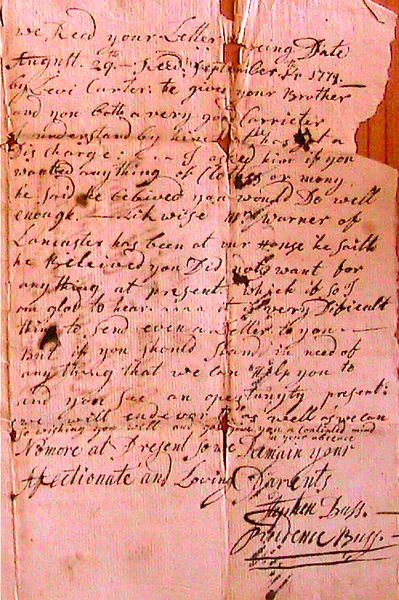 we Recd your Letter bearing Date
August. 29th — Recd September
by Levi Carter: he gives your Brother
and you both a very good Carricter
I understand by him he has got a
Discharge: I asked him if you
wanted anything of Cloths or mony
he said he beleived you would Do well
enough. — Likwise Mr Warner of
Lancaster has been at our House he saith
he Received you Did not want for
anything at present which if so I
am glad to hear it is very Dificalt
thing to send even a Letter to you —
But if you should Stand in need of
anything that we can Help you to
and you see an opertunyty present:
we will endever as well as we can
so wishing you well and a contented mind
in your absence
No more at Present so we Remain your
Affectionate and Loving Parents
Stephen Buss. —
Prudence Buss. —